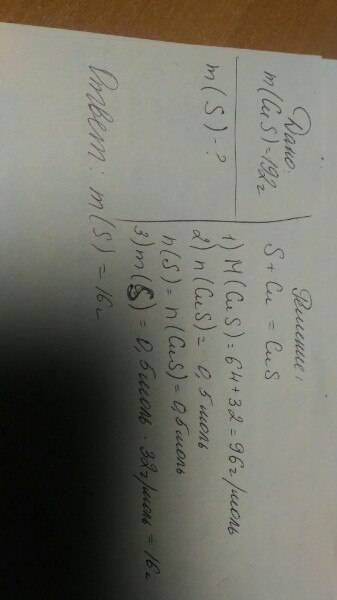 Дано:
m(CuS)=192г
m(S)-?
Решение:
S + Cu = CuS
1) M(CuS)=64+32=96г/моль
2) n(CuS)= 0,5моль
n(S)= n(CuS)= 0,5моль
3) m(S)= 0,5моль · 32г/моль = 16г
Ответ: m(S)=16г